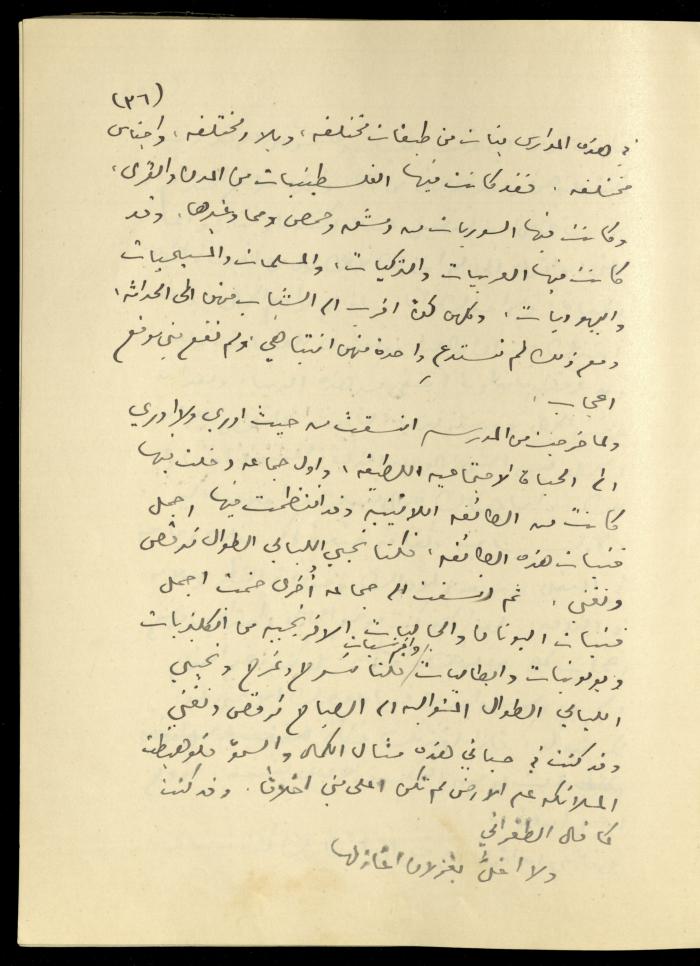 (٣٦)
في هذه المدارس بنات من طبقات مختلفه، وبلاد مختلفه، واجناس
مختلفه. فقد كانت فيها الفلسطينيات من المدن والقرى،
وكانت فيها السوريات من دمشق وحمص وحما وغيرها. وقد
كانت فيها العربيات والتركيات، والمسلمات والمسيحيات
واليهوديات، وكلهن كن اقرب الى الشباب منهن الى الحداثه،
ومع ذلك لم تستدعِ واحدة منهن انتباهي ولم تقع مني موقع
اعجاب.
ولما خرجت من المدرسه انسقت من حيث ادري ولا ادري
الى الحياة الاجتماعيه اللطيفه، واول جماعه دخلت فيها
كانت من الطائفه اللاتينيه وقد انتظمت فيها اجمل
فتيات هذه الطائفه، فكنا نحيي الليالي الطوال نرقص
ونغني. ثم انسقت الى جماعه أُخرى ضمت اجمل
فتيات اليونان والجاليات الافرنجيه من انكليزيات
وافرنسيات
وبولونيات وايطاليات / فكنا نسرح ونمرح ونحيي
الليالي الطوال المتواليه الى الصباح نرقص ونغني
وقد كنت في حياتي هذه مثال الكمال والسموّ فلو هبطت
الملائكه على الارض لم تكن اعلى مني اخلاقا. وقد كنت
كما قال الطغرائي
ولا اخلُّ بغزلان اغازلها